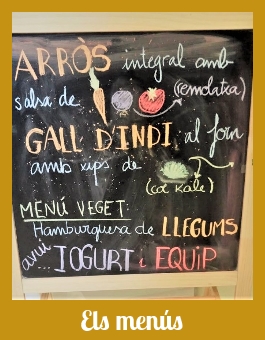 ARRÒS integral amb
salsa de (remolatxa)
GALL D'INDI al forn
amb xips de
(col Kale)
MENÚ VEGET:
Hamburguesa de LLEGUMS
avui ... IOGURT i EQUIP
Els menús